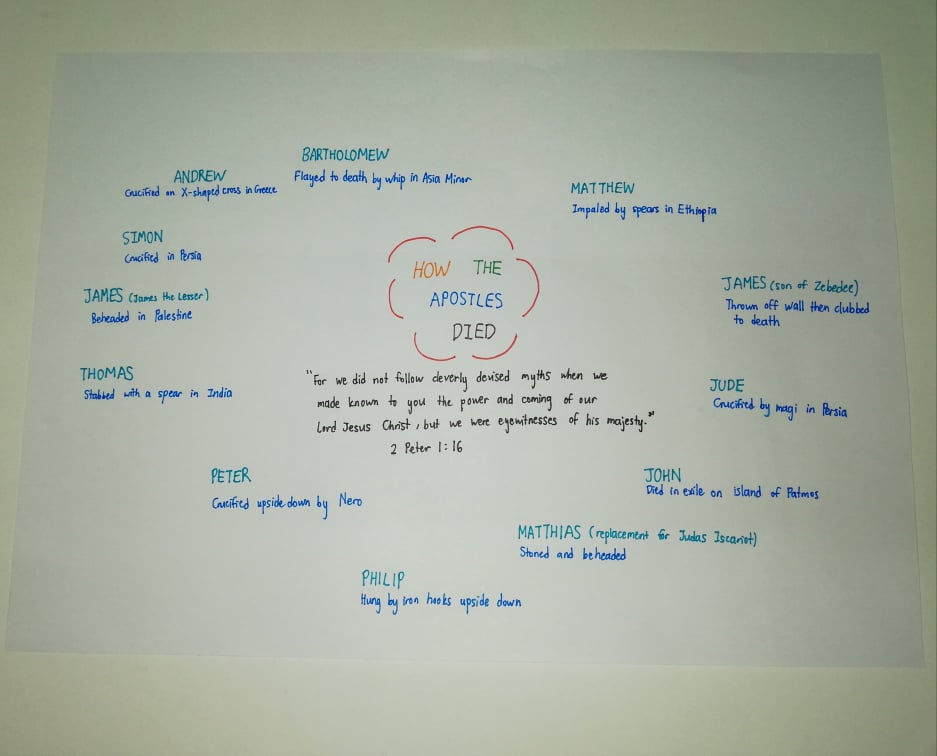 BARTHOLOMEW
Flayed to death by whip in Asia Minor
ANDREW
Crucified on X-shaped cross in Greece
MATTHEW
Impaled by spears in Ethiopia
SIMON
Crucified in Persia
HOW THE
APOSTLES
DIED
JAMES (James the Lesser)
Beheaded in Palestine
JAMES (son of Zebedee)
Thrown off wall then clubbed
to death
THOMAS
Stabbed with a spear in India
"For we did not follow cleverly devised myths when we
made known to you the power and coming of our
Lord Jesus Christ, but we were eyewitnesses of his majesty."
2 Peter 1:16
JUDE
Crucified by magi in Persia
PETER
Crucified upside down by Nero
JOHN
Died in exile on island of Patmos
MATTHIAS (replacement for Judas Iscariot)
Stoned and beheaded
PHILIP
Hung by iron hooks upside down